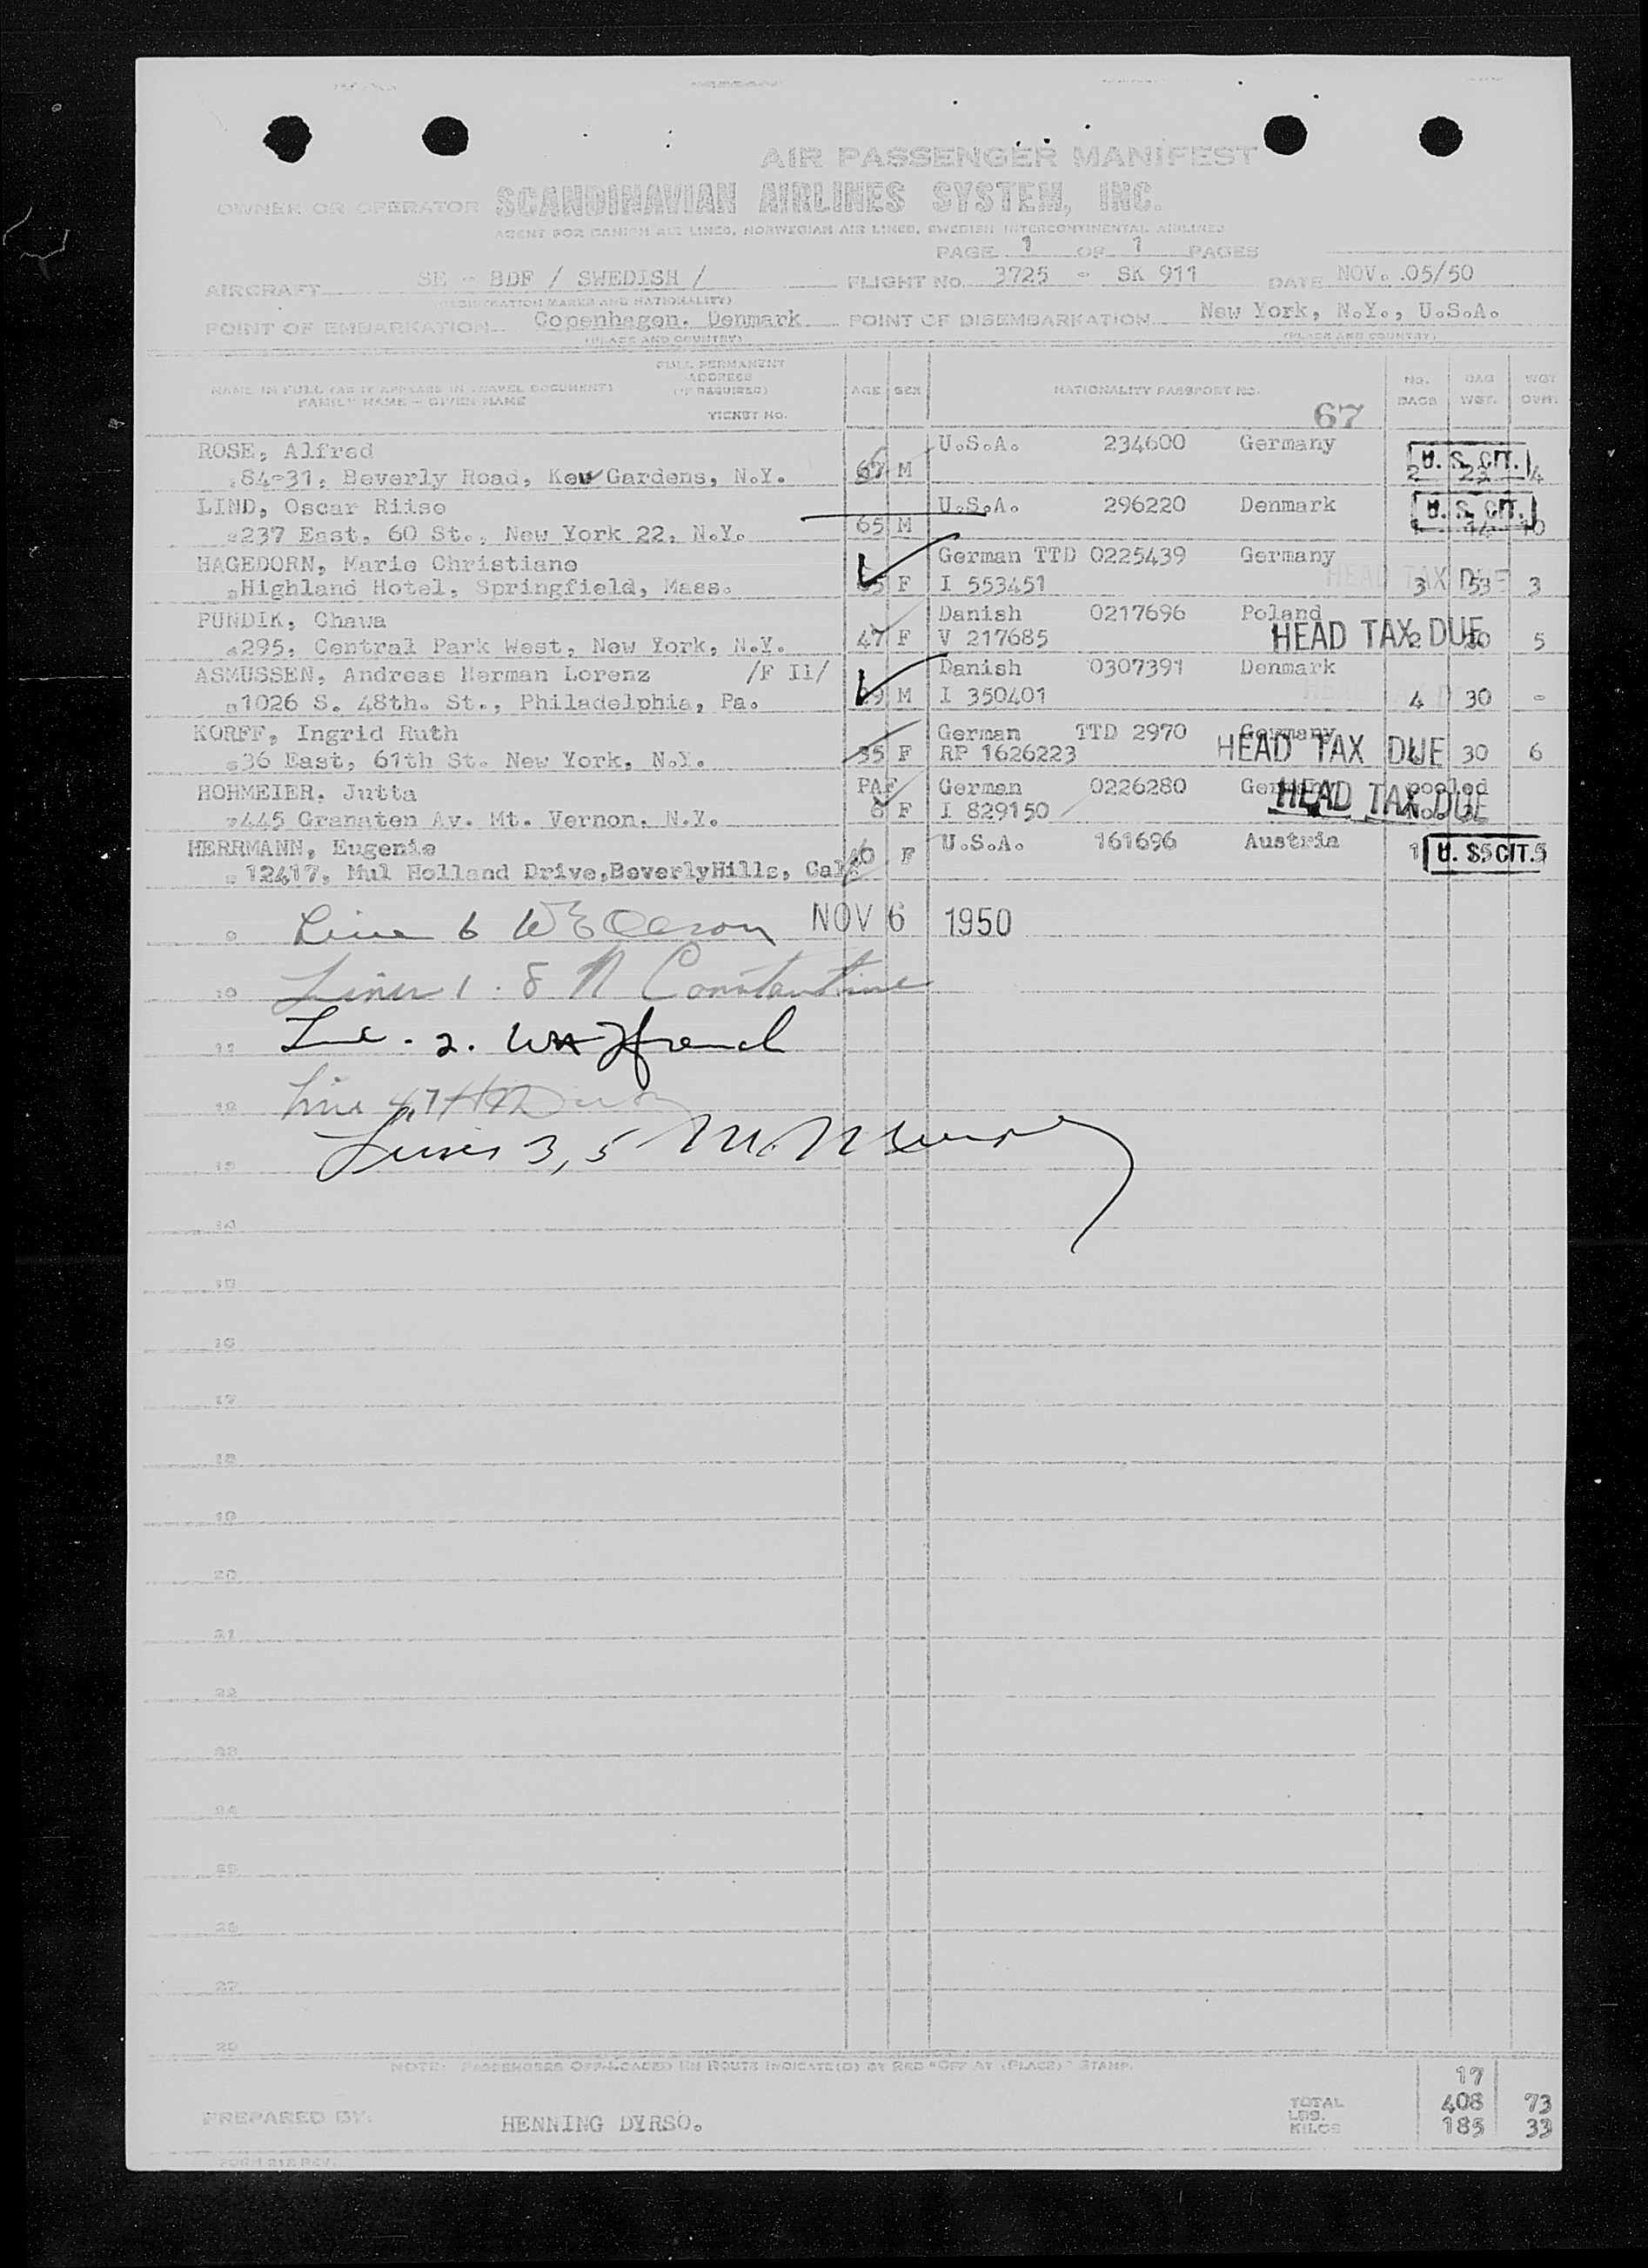 AIR PASSENGER MANIFEST
OWNER OR OPERATOR SCANDINAVIAN AIRLINES SYSTEM, INC.
AGENT FOR DANISH AIR LINES, NORWEGIAN AIR LINES, SWEDISH INTERCONTINENTAL AIRLINES
PAGE 1 OF 1 PAGES
AIRCRAFT SE - BDF / SWEDISH / FLIGHT No. 3725 - SK 911 DATE NOV. 05/50
(REGISTRATION MARKS AND NATIONALITY)
POINT OF EMBARKATION Copenhagen. Denmark POINT OF DISEMBARKATION New York, N.Y., U.S.A.
(PLACE AND COUNTRY) (PLACE AND COUNTRY)
NAME IN FULL (AS IT APPEARS IN TRAVEL DOCUMENT) FAMILY NAME - GIVEN NAME FULL PERMANENT ADDRESS (IF REQUIRED) TICKET NO. AGE SEX NATIONALITY PASSPORT NO. No. BAGS BAG WGT. WGT
67
ROSE, Alfred U.S.A. 234600 Germany U. S. CIT.
84-31, Beverly Road, Kew Gardens, N.Y. 67 M 2 4
LIND, Oscar Riise U.S.A. 296220 Denmark U. S. CIT.
237 East, 60 St., New York 22, N.Y. 65 M 10
HAGEDORN, Marie Christiane German TTD 0225439 Germany HEAD TAX DUE
Highland Hotel, Springfield, Mass. F I 553451 3 53 3
PUNDIK, Chawa Danish 0217696 Poland
295, Central Park West, New York, N.Y. 47 F V 217685 HEAD TAX DUE 5
ASMUSSEN, Andreas Herman Lorenz /F II/ Danish 0307391 Denmark
1026 S. 48th. St., Philadelphia, Pa. M I 350401 4 30 -
KORFF, Ingrid Ruth German TTD 2970 Germany
36 East, 61th St. New York, N.Y. 35 F RP 1626223 HEAD TAX DUE 30 6
HOHMEIER. Jutta PAF German 0226280 Germany pooled
445 Granaten Av. Mt. Vernon. N.Y. 6 F I 829150 HEAD TAX DUE
HERRMANN, Eugenie 40 F U.S.A. 161696 Austria 1 U. S. CIT. 5
12417, Mul Holland Drive,BeverlyHills, Cal.
Line 6 NOV 6 1950
10 Lines 1 . 8 N Constantine
11 Line . 2. French
12
Lines 3, 5
13
14
15
16
17
18
19
20
21
22
23
24
25
26
27
28
NOTE: PASSENGERS OFF-LOADED EN ROUTE INDICATE(D) BY RED "OFF AT (PLACE)" STAMP.
17
TOTAL LBS. 408 73
PREPARED BY: HENNING DYRSO. KILOS 185 33
FORM 212 REV.